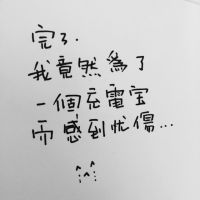 完了.
我竟然為了
一個充電宝
而感到忧傷...